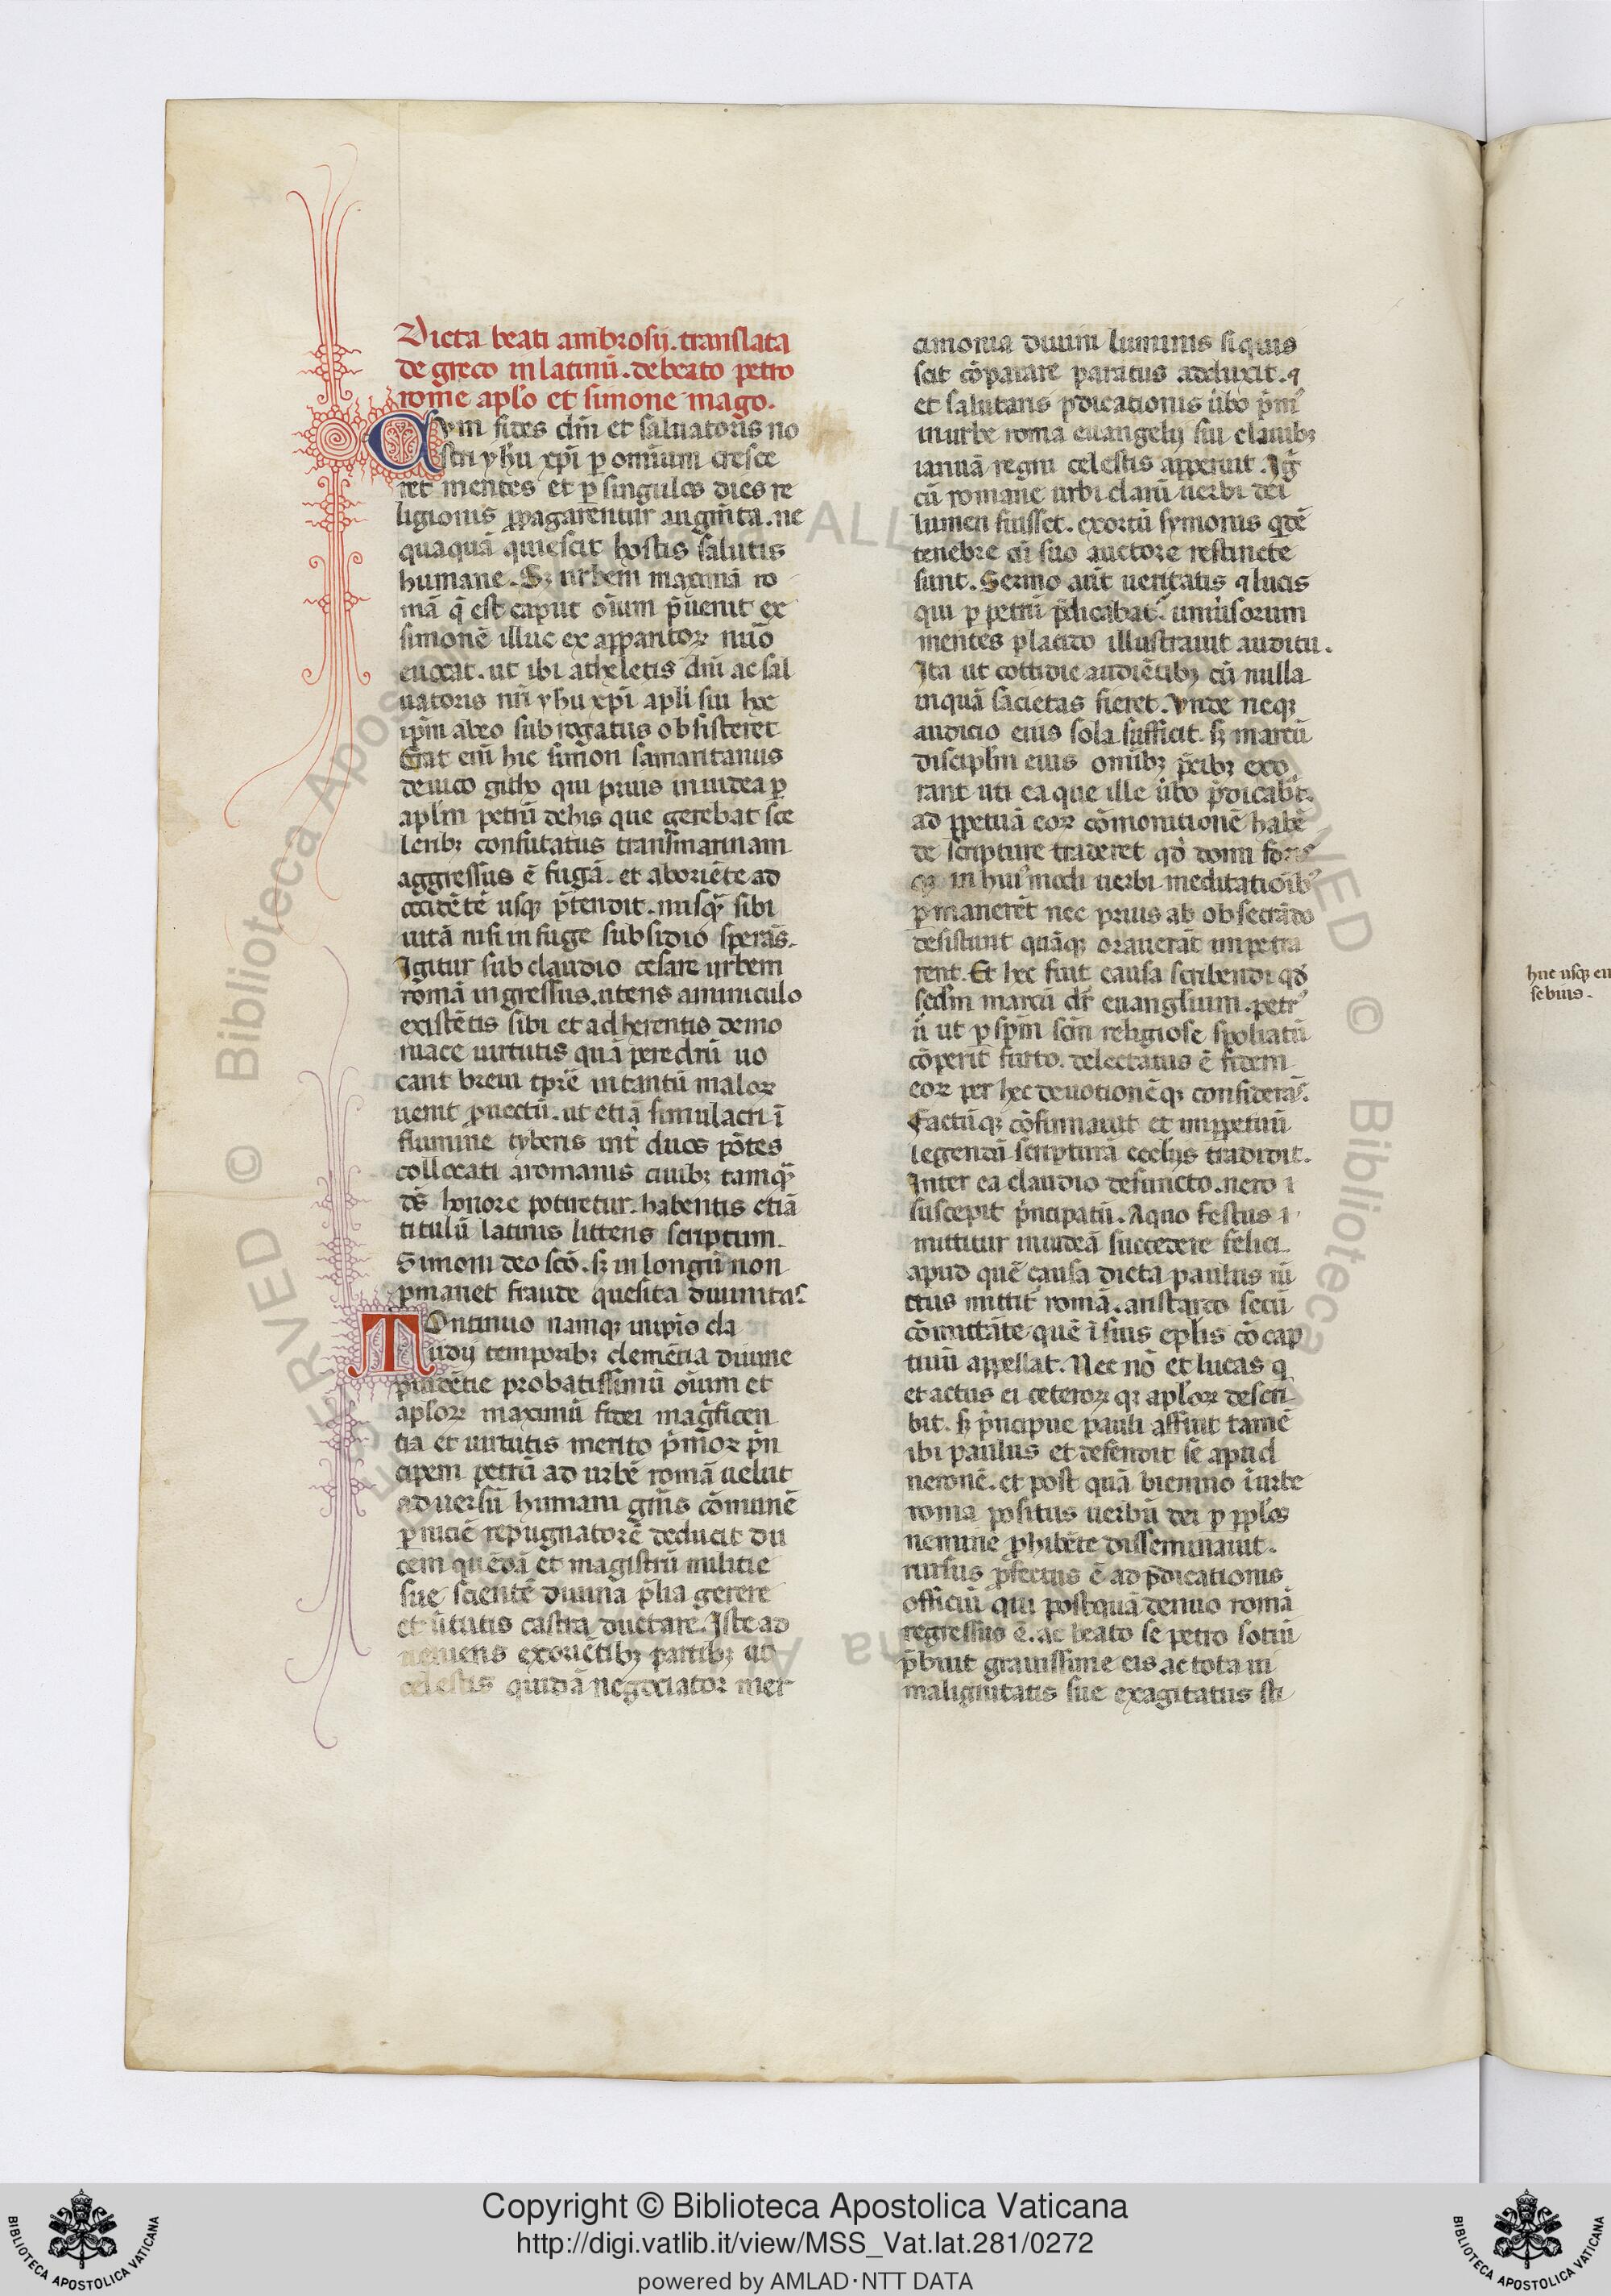 Dicta beati ambrosii. translata
de greco in latinū. de beato petro
rome apl'o et simone mago.
Cum fides dn̄i et saluatoris no
stri yh̄u xp̄i p omnium cresce
ret mentes et p singulos dies re
ligionis ꝓpagarentur augm̄ta. ne
quaquā quiescit hostis salutis
humane. Sꝫ urbem maximā ro
mā q̄ est caput oīum p̄uenit ex
simonē illuc ex apparitoꝝ nūo
euocat. ut ibi atheletis dn̄i ac sal
uatoris nr̄i yhu xp̄i apl'i sui hoc
ip̄m ab eo subrogatus obsisteret
Erat eni hic simon samaritanus
de uico githo qui prius in iudea p
apl'm petrū de his que gerebat sce
leribꝫ confutatus transmarinam
aggressus ē fugā. et ab oriēte ad
occidētē usqꝫ p̄tendit. nusq̄ sibi
uitā nisi in fuge subsidio sperās.
Igitur sub claudio cesare urbem
romā ingressus. utens aminiculo
existētis sibi et adherentis demo
niace uirtutis quā peredrū uo
cant breui tp̄re in tantū maloꝝ
uenit ꝓuectū. ut etiā simulacri ī
flumine tyberis int̄ duos pōtes
collocati a romanis ciuibꝫ tamq̄
dō honore potiretur. habentis etiā
titulū latinis litteris scriptum.
Simoni deo scō. sꝫ in longū non
pmanet fraude quesita diuinitas
Continuo namqꝫ in ip̄o cla
udij temporibꝫ clemētia diuine
puidētie probatissimū oīum et
apl'oꝝ maximū fidei maḡficen
tia et uirtutis merito p̄moꝝ p̄n
cipem petrū ad urbē romā uelut
aduersū humani gn̄is cōmunē
pniciē repugnatorē deducit du
cem quēdā et magistrū militie
sue scientē diuina p̄lia gerere
et ūtutis castra ductare. Iste ad
ueniens ex oriētibꝫ partibꝫ ut
celestis quidā negociator mer
cimonia diuini luminis si quis
scit cōparare paratus adduxit. ⁊
et salutaris p̄dicationis ūbo p̄m'
in urbe roma euangelij sui clauibꝫ
ianuā regni celestis apperuit. Iḡ
cū romane urbi clarū uerbi dei
lumen fuisset. exortū symonis q̄dē
tenebre cū suo auctore restincte
sunt. Sermo aūt ueritatis ⁊ lucis
qui p petrū p̄dicabat' uniuersorum
mentes placito illustrauit auditu.
Ita ut cottidie audiētibꝫ cū nulla
inquā sacietas fieret. Vnde neqꝫ
audicio eius sola sufficit. sꝫ marcū
discipl'm eius omībꝫ p̄cibꝫ exo
rant uti ea que ille ūbo p̄dicabt.
ad ꝑpetuā eoꝝ cōmonitionē habē
de scripture traderet qd' domi foris
qꝫ in hui'modi uerbi meditationibꝫ
pmanerēt nec prius ab obsecrādo
desistunt quāqꝫ orauerāt impetra
rent. Et hec fuit causa scribendi qd'
secdm marcū dr̄ euanglium. petr'
ū ut p spm̄ scm̄ religiose spoliatū
cōperit furto. delectatus ē fidem
eoꝝ per hec deuotionēqꝫ considerās.
Factūqꝫ cōfirmauit et in ꝑpetuū
legendā scripturā ecclijs tradidit.
Inter ea claudio defuncto. nero
suscepit p̄ncipatū. A quo festus
mittitur in iudeā succedere felici
apud quē causa dicta paulus iū
ctus mittit' romā. aristarco secū
cōmitāte quē ī suis epl'is cōcap
tiuū appellat. Nec nō et lucas q
et actus ei ceteroꝝ qꝫ apl'oꝝ descri
bit. sꝫ p̄ncipue pauli affuit tamē
ibi paulus et defendit se apud
neronē. et post quā biennio ī urbe
roma positus uerbū dei p ppl'os
nemine ꝓhibēte disseminauit.
rursus ꝓfectus ē ad p̄dicationis
officiū qui postquā denuo romā
regressus ē. ac beato se petro sotiū
p̄buit grauissime eis ac tota ui
malignitatis sue exagitatus sti
huc usqꝫ eu
sebius.
Copyright © Biblioteca Apostolica Vaticana
http://digi.vatlib.it/view/MSS_Vat.lat.281/0272
powered by AMLAD·NTT DATA
BIBLIOTECA APOSTOLICA VATICANA
BIBLIOTECA APOSTOLICA VATICANA